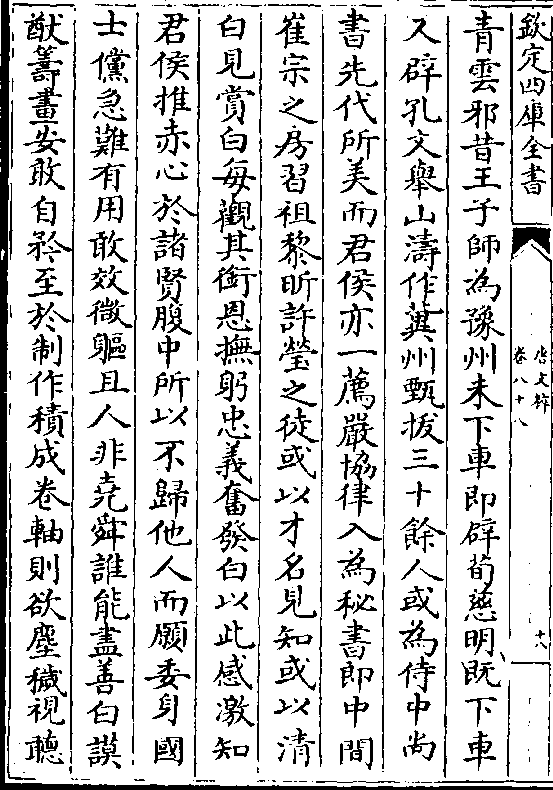 欽定四庫全書
唐文粹
卷八十八
十八
青雲邪昔王子師為豫州未下車即辟荀慈明既下車
又辟孔文舉山濤作冀州甄拔三十餘人或為侍中尚
書先代所美而君侯亦一薦嚴協律入為秘書郎中間
崔宗之房習祖黎昕許瑩之徒或以才名見知或以清
白見賞白每觀其銜恩撫躬忠義奮發白以此感激知
君侯推赤心於諸賢腹中所以不歸他人而願委身國
士儻急難有用敢效微軀且人非堯舜誰能盡善白謨
猷籌畫安敢自矜至於制作積成卷軸則欲塵穢視聽